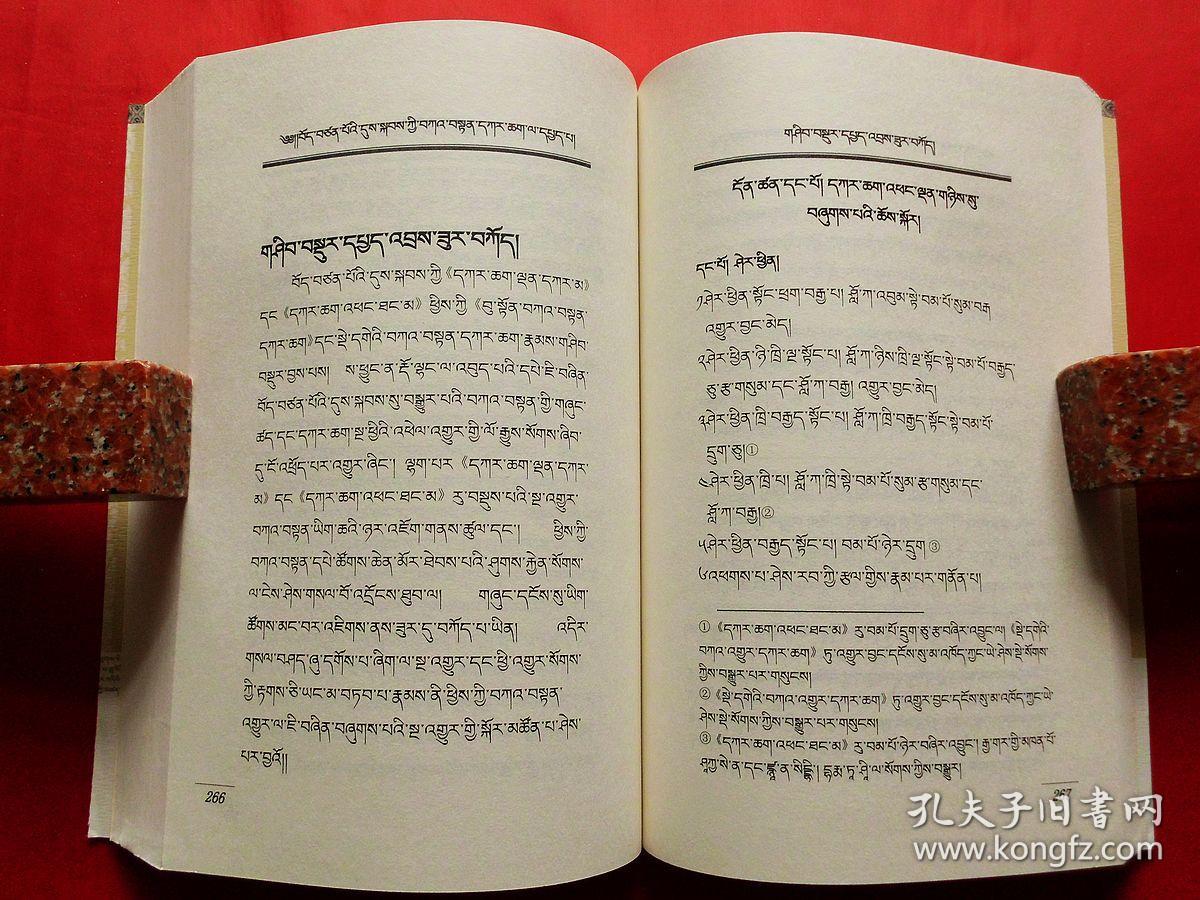 ༄༅།།བོད་བཙན་པོའི་དུས་སྐབས་ཀྱི་བཀའ་བསྟན་དཀར་ཆག་ལ་དཔྱད་པ།
གཤིབ་བསྡུར་དཔྱད་འབྲས་ཟུར་བཀོད།
བོད་བཙན་པོའི་དུས་སྐབས་ཀྱི《དཀར་ཆག་ལྡན་དཀར་མ》
དང《དཀར་ཆག་འཕང་ཐང་མ》ཕྱིས་ཀྱི《བུ་སྟོན་བཀའ་བསྟན་
དཀར་ཆག》དང་སྡེ་དགེའི་བཀའ་བསྟན་དཀར་ཆག་རྣམས་གཤིབ་
བསྡུར་བྱས་པས། ས་ཕྱུང་ན་རྡོ་ལྷང་ལ་འབུད་པའི་དཔེ་ཇི་བཞིན་
བོད་བཙན་པོའི་དུས་སྐབས་སུ་བསྒྱུར་པའི་བཀའ་བསྟན་གྱི་གཞུང་
ཚད་དང་དཀར་ཆག་སྔ་ཕྱིའི་འཕེལ་འགྱུར་གྱི་ལོ་རྒྱུས་སོགས་ཞིབ་
ཏུ་ངོ་འཕྲོད་པར་འགྱུར་ཞིང་། ལྷག་པར《དཀར་ཆག་ལྡན་དཀར་
མ》དང《དཀར་ཆག་འཕང་ཐང་མ》རུ་བསྡུས་པའི་སྔ་འགྱུར་
བཀའ་བསྟན་ཡིག་ཆའི་ཉར་འཇོག་གནས་ཚུལ་དང་། ཕྱིས་ཀྱི་
བཀའ་བསྟན་དཔེ་ཚོགས་ཆེན་མོར་ཐེབས་པའི་ཤུགས་རྐྱེན་སོགས་
ལ་ངེས་ཤེས་གསལ་བོ་འདྲོངས་ཐུབ་ལ། གཞུང་དངོས་སུ་ཡིག་
ཚོགས་མང་བར་འཇིགས་ནས་ཟུར་དུ་བཀོད་པ་ཡིན། འདིར་
གསལ་བཤད་ཞུ་དགོས་པ་ཞིག་ལ་སྔ་འགྱུར་དང་ཕྱི་འགྱུར་སོགས་
ཀྱི་རྟགས་ཅི་ཡང་མ་བཏབ་པ་རྣམས་ནི་ཕྱིས་ཀྱི་བཀའ་བསྟན་
འགྱུར་ལ་ཇི་བཞིན་བཞུགས་པའི་སྔ་འགྱུར་གྱི་སྐོར་མཚོན་པ་ཤེས་
པར་བྱའོ།།
266
གཤིབ་བསྡུར་དཔྱད་འབྲས་ཟུར་བཀོད།
དོན་ཚན་དང་པོ། དཀར་ཆག་འཕང་ལྡན་གཉིས་སུ་
བཞུགས་པའི་ཆོས་སྐོར།
དང་པོ། ཤེར་ཕྱིན།
༡.ཤེར་ཕྱིན་སྟོང་ཕྲག་བརྒྱ་པ། ཤློ་ཀ་འབུམ་སྟེ་བམ་པོ་སུམ་བརྒྱ
འགྱུར་བྱང་མེད།
༢.ཤེར་ཕྱིན་ཉི་ཁྲི་ལྔ་སྟོང་པ། ཤློ་ཀ་ཉིས་ཁྲི་ལྔ་སྟོང་སྟེ་བམ་པོ་བརྒྱད་
ཅུ་རྩ་གསུམ་དང་ཤློ་ཀ་བརྒྱ། འགྱུར་བྱང་མེད།
༣.ཤེར་ཕྱིན་ཁྲི་བརྒྱད་སྟོང་པ། ཤློ་ཀ་ཁྲི་བརྒྱད་སྟོང་སྟེ་བམ་པོ་
དྲུག་ཅུ།①
༤.ཤེར་ཕྱིན་ཁྲི་པ། ཤློ་ཀ་ཁྲི་སྟེ་བམ་པོ་སུམ་རྩ་གསུམ་དང་
ཤློ་ཀ་བརྒྱ།②
༥.ཤེར་ཕྱིན་བརྒྱད་སྟོང་པ། བམ་པོ་ཉེར་དྲུག③
༦.འཕགས་པ་ཤེས་རབ་ཀྱི་རྩལ་གྱིས་རྣམ་པར་གནོན་པ།
①《དཀར་ཆག་འཕང་ཐང་མ》རུ་བམ་པོ་དྲུག་ཅུ་རྩ་བཞིར་འབྱུང་ལ།《སྡེ་དགེའི་
བཀའ་འགྱུར་དཀར་ཆག》ཏུ་འགྱུར་བྱང་དངོས་སུ་མ་འཁོད་ཀྱང་ཡེ་ཤེས་སྡེ་སོགས་
ཀྱིས་བསྒྱུར་པར་གསུངས།
②《སྡེ་དགེའི་བཀའ་འགྱུར་དཀར་ཆག》ཏུ་འགྱུར་བྱང་དངོས་སུ་མ་འཁོད་ཀྱང་ཡེ་
ཤེས་སྡེ་སོགས་ཀྱིས་བསྒྱུར་པར་གསུངས།
③《དཀར་ཆག་འཕང་ཐང་མ》རུ་བམ་པོ་ཉེར་བཞིར་འབྱུང་། རྒྱ་གར་གྱི་མཁན་པོ་
ཤཱཀྱ་སེ་ན་དང་ཛྙཱ་ན་སིདྡྷི། དྷརྨ་ཏཱ་ཤཱི་ལ་སོགས་ཀྱིས་བསྒྱུར།
267
孔夫子旧书网
www.kongfz.com